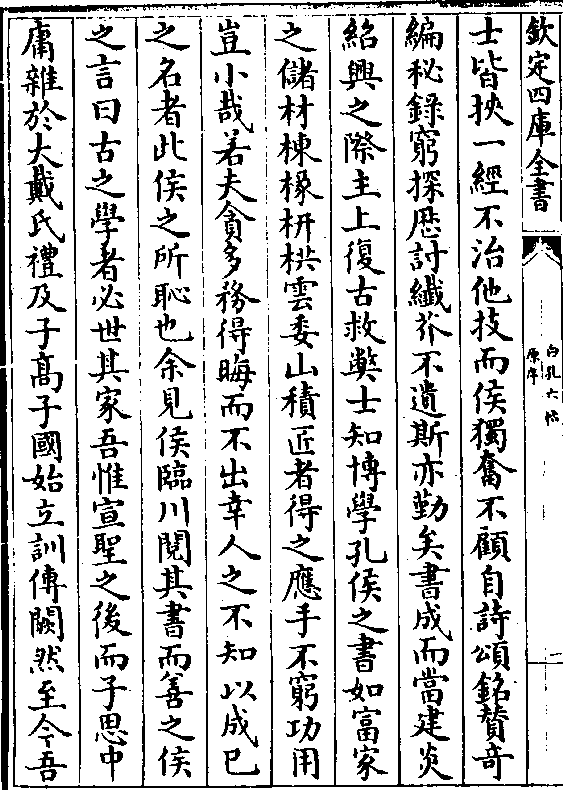 欽定四庫全書
白孔六帖
原序
士皆挾一經不治他技而侯獨奮不顧自詩頌銘贊竒
編秘錄窮探厯討纎芥不遺斯亦勤矣書成而當建炎
紹興之際主上復古救獘士知博學孔侯之書如富家
之儲材棟椽枅栱雲委山積匠者得之應手不窮功用
豈小哉若夫貪多務得晦而不出幸人之不知以成已
之名者此侯之所恥也余見侯臨川閱其書而善之侯
之言曰古之學者必世其家吾惟宣聖之後而子思中
庸雜於大戴氏禮及子髙子國始立訓傳闕然至今吾